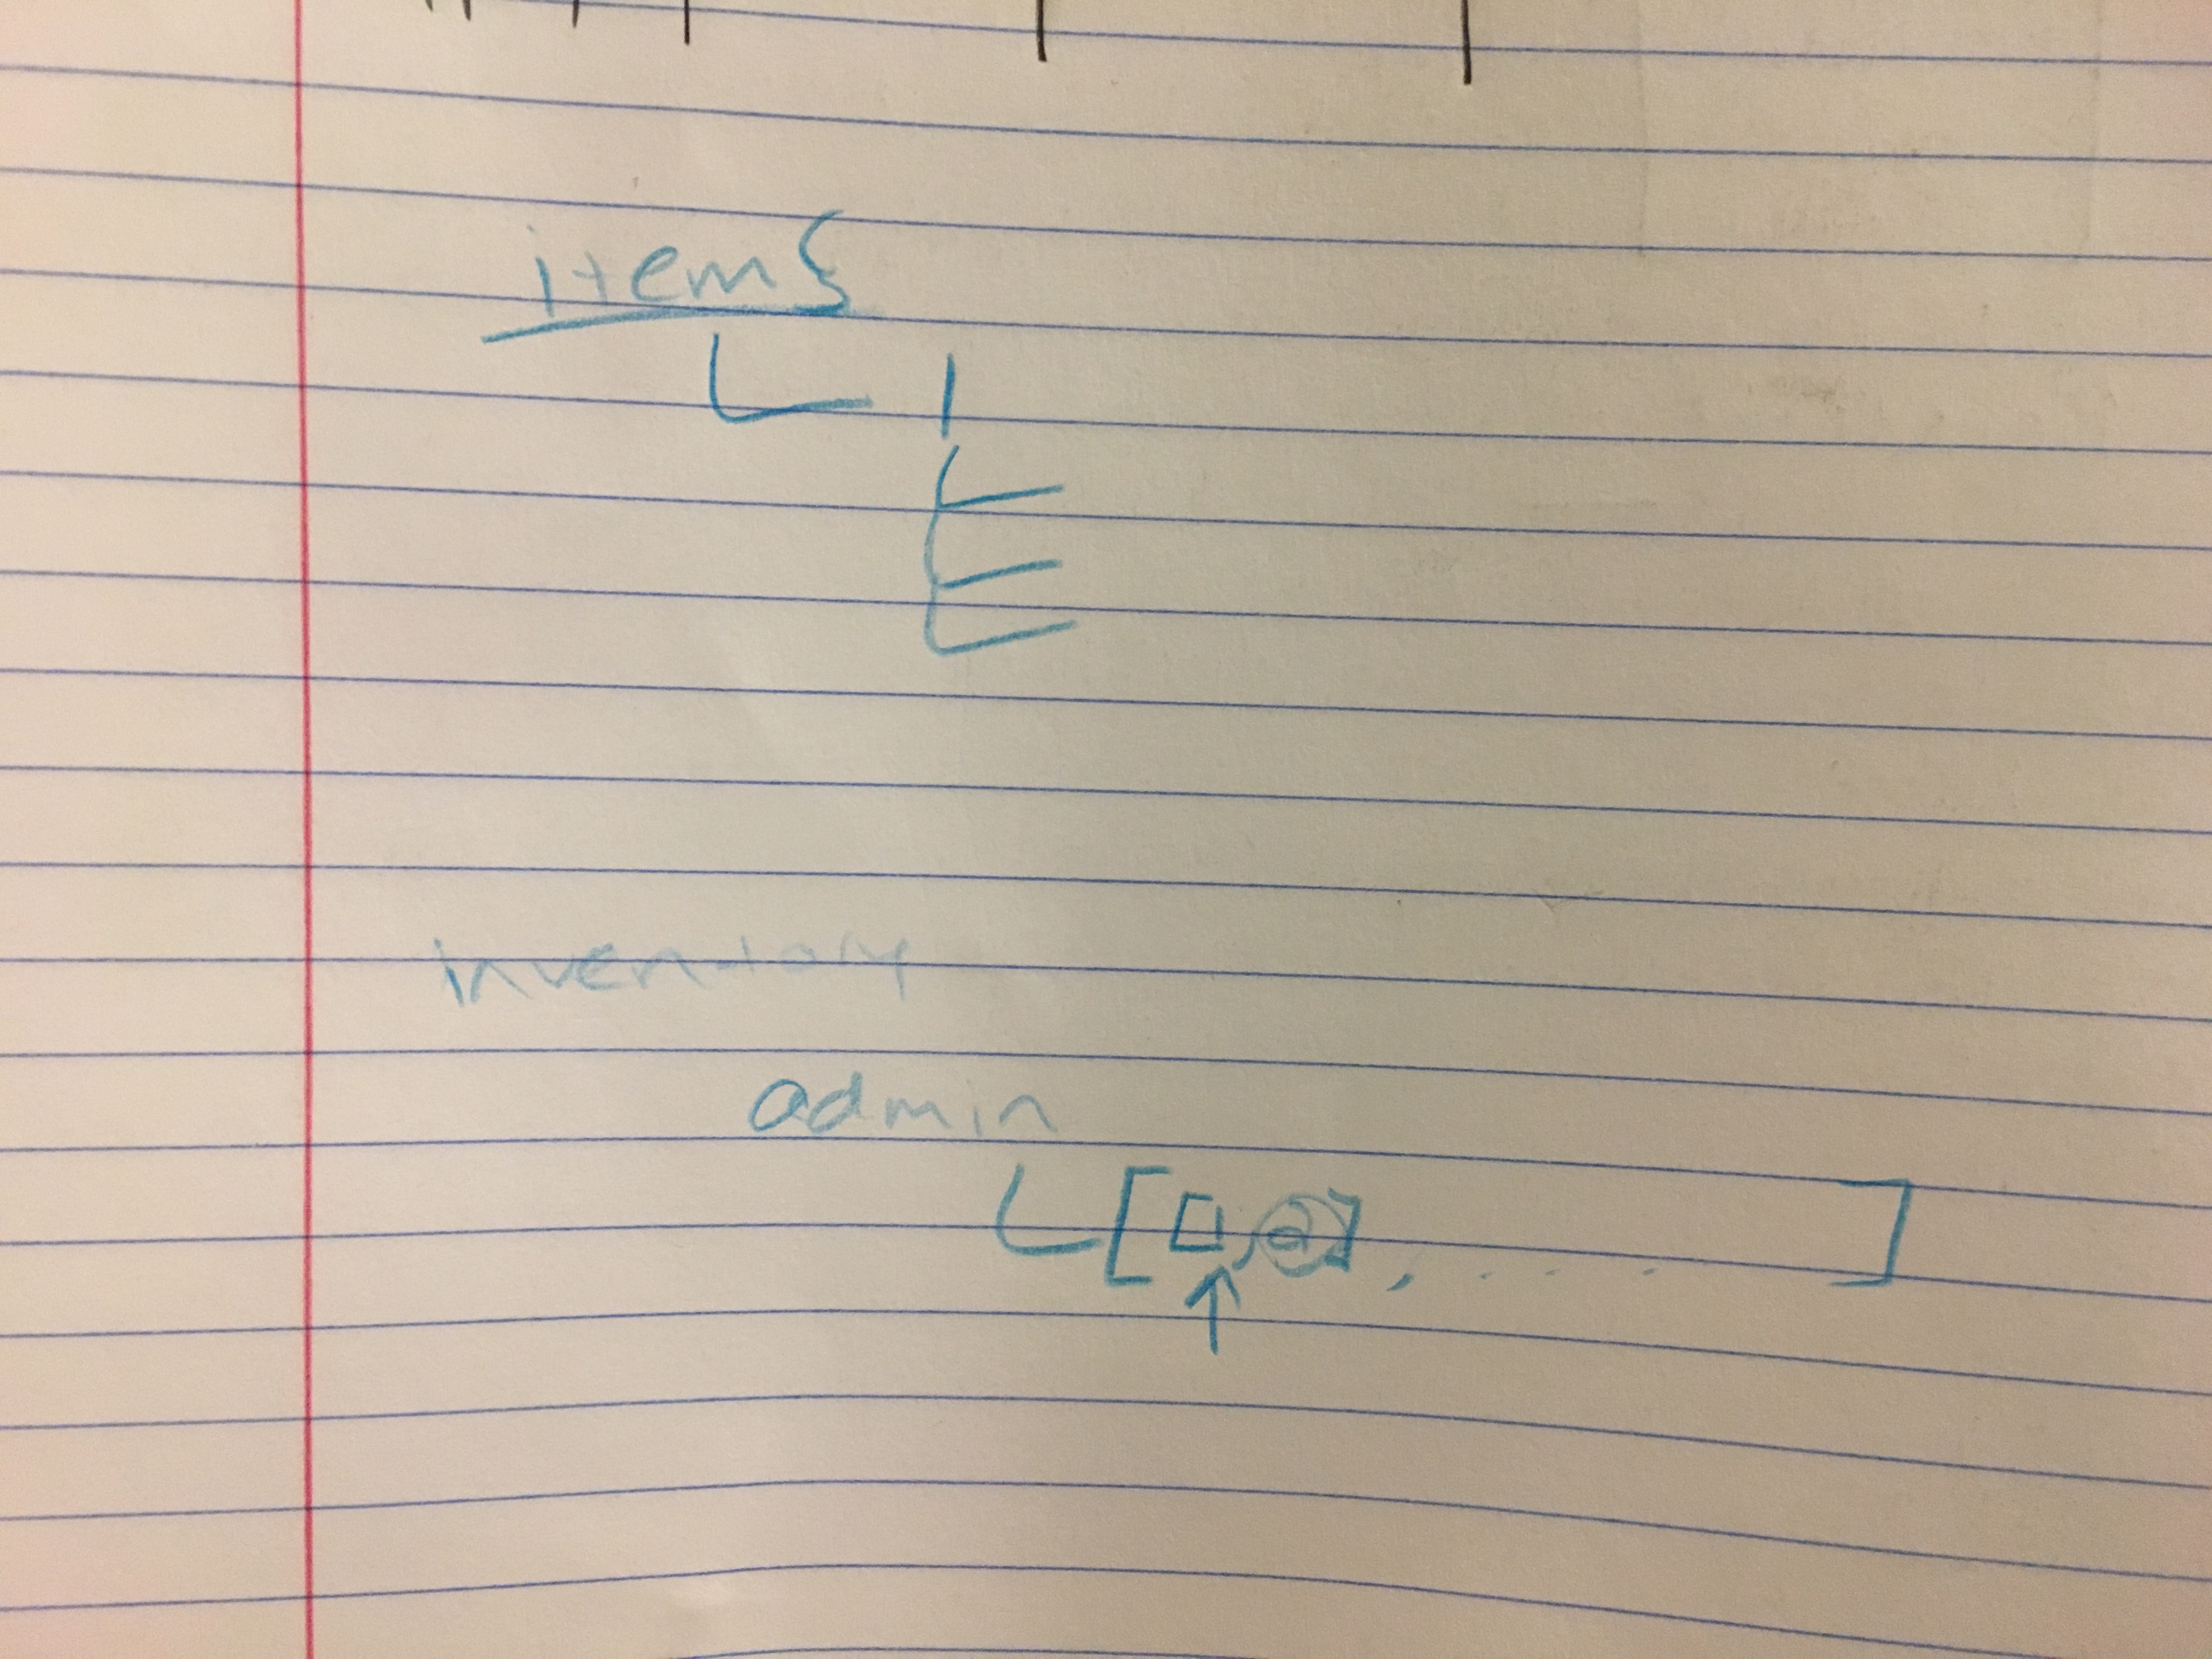 items
1
inventory
admin
[ , ], .... ]